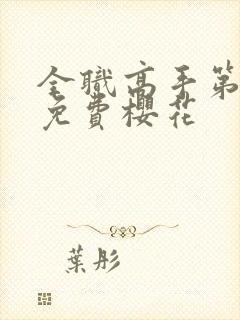 全職高手第
免費櫻花
葉彤